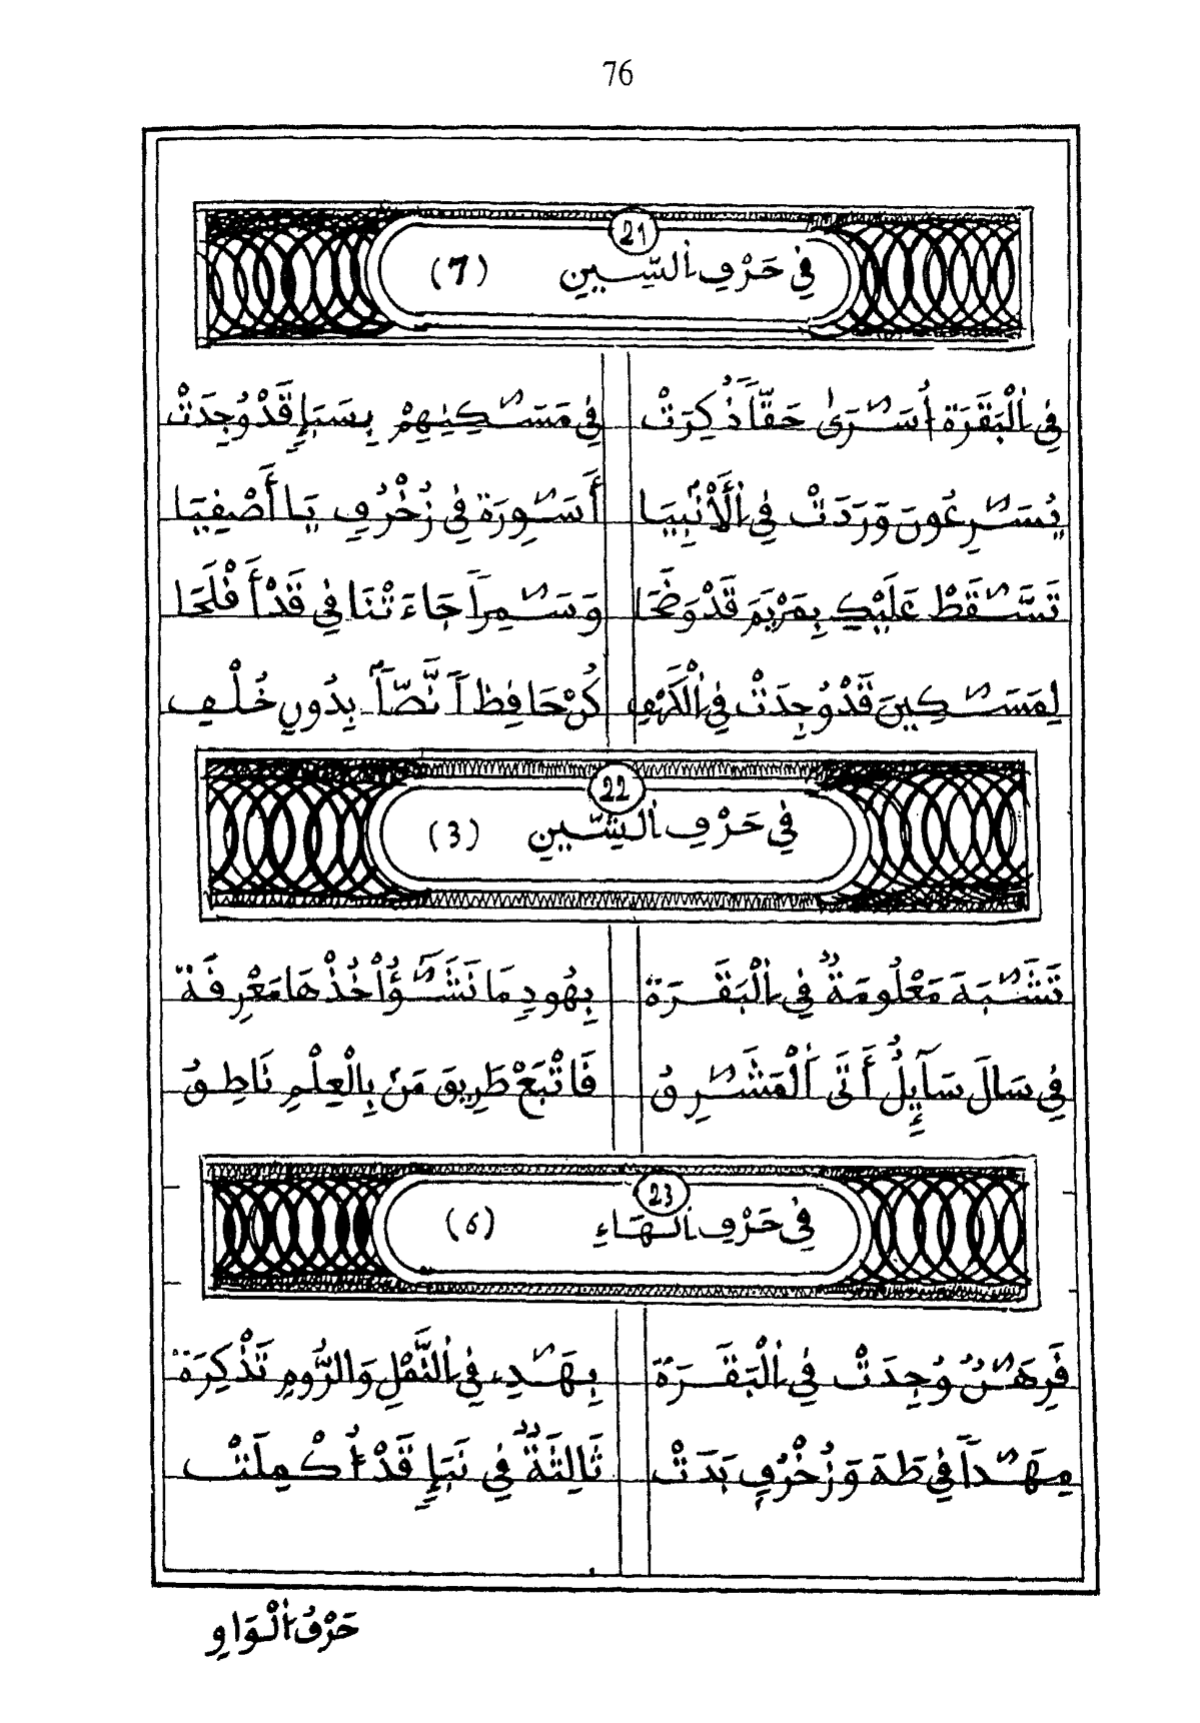 76
21
فِي حَرْفِ اَلسِّينِ (7)
فِي اِلْبَقَرَة أُسَٰرَىٰ حَقّاً ذُكِرَتْ فِي مَسَٰكِنِهِمْ بِسَبَإٍ قَدْ وُجِدَتْ
يُسَٰرِعُونَ وَرَدَتْ فِي اِلْأَنْبِيَا أَسَٰوِرَة فِي زُخْرُفٍ يَا أَصْفِيَا
تَسَّٰقَطْ عَلَيْكِ بِمَرْيَمَ قَدْ وَضَحَا وَسَٰمِراً جَاءَتْنَا فِي قَدْ أَفْلَحَا
لِمَسَٰكِينَ قَدْ وُجِدَتْ فِي اِلْكَهْفِ كُنْ حَافِظاً نَّصّاً بِدُونِ خُلْفِ
22
فِي حَرْفِ اَلشِّينِ (3)
تَشَٰبَهَ مَعْلُومَةٌ فِي اِلْبَقَرَة بِهُودِ مَا نَشَٰٓؤُاْ خُذْهَا مَعْرِفَة
فِي سَالَ سَآئِلُ أَتَى اَلْمَشَٰرِقُ فَاتْبَعْ طَرِيقَ مَنْ بِالْعِلْمِ نَاطِقُ
23
فِي حَرْفِ اِلْهَاءِ (6)
فَرِهَٰنٌ وُجِدَتْ فِي اِلْبَقَرَة بِهَٰدِ، فِي اِلنَّمْلِ وَالرُّومِ تَذْكِرَة
مِهَٰداً فِي طَهَ وَزُخْرُفٍ بَدَتْ ثَالِثَةٌ فِي نَبَإٍ قَدْ أُكْمِلَتْ
حَرْفُ اُلْوَاوِ